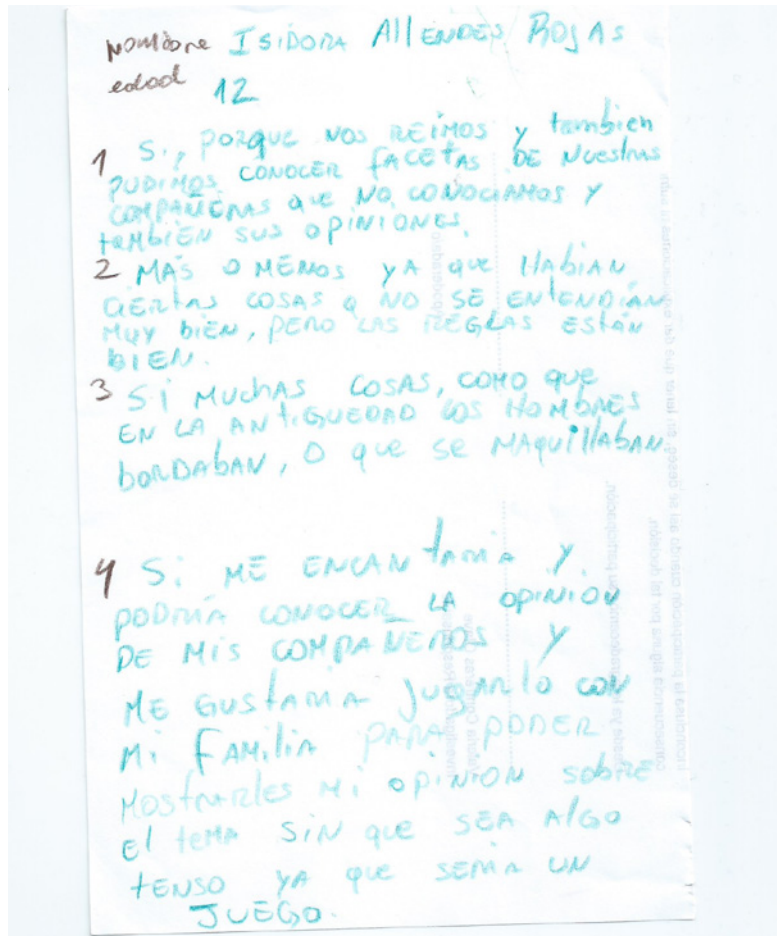 Nombre Isidora Allendes Rojas
edad 12
1 Si, porque nos reimos y tambien
pudimos conocer facetas de nuestras
compañeras que no conociamos y
también sus opiniones.
2 Más o menos ya que habian
ciertas cosas q no se entendían
muy bien, pero las reglas están
bien.
3 Si muchas cosas, como que
en la antiguedad los hombres
bordaban, o que se maquillaban
4 Si me encantaria y
podria conocer la opinion
de mis compañeros y
me gustaria jugarlo con
mi familia para poder
mostrarles mi opinion sobre
el tema sin que sea algo
tenso ya que seria un
juego.